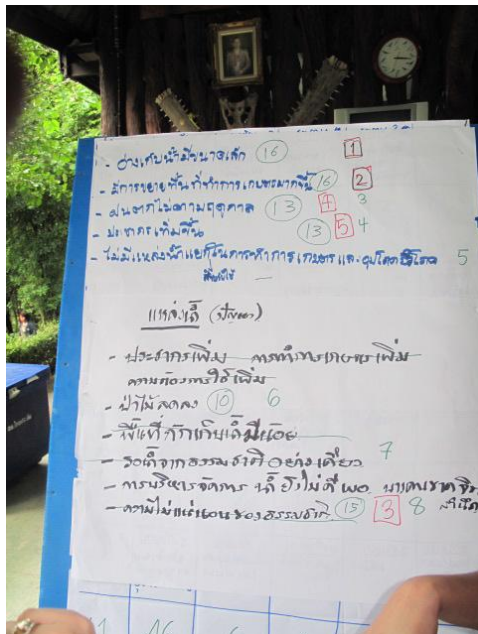 - อ่างเก็บน้ำมีขนาดเล็ก 16 1
- มีการขยายพื้นที่ทำการเกษตรมากขึ้น 16 2
- ฝนตกไม่ตามฤดูกาล 13 4 3
- ประชากรเพิ่มขึ้น 13 5 4
- ไม่มีแหล่งน้ำแยกในการทำการเกษตรและอุปโภคบริโภค 5
(ปัญหา)
- ประชากรเพิ่ม การทำการเกษตรเพิ่ม
ความต้องการใช้เพิ่ม
- ป่าไม้ลดลง 10 6
- พื้นที่กักเก็บน้ำมีน้อย
- รอน้ำจากธรรมชาติอย่างเดียว 7
- การบริหารจัดการน้ำยังไม่ดีพอ
- ความไม่แน่นอนของธรรมชาติ 15 3 8